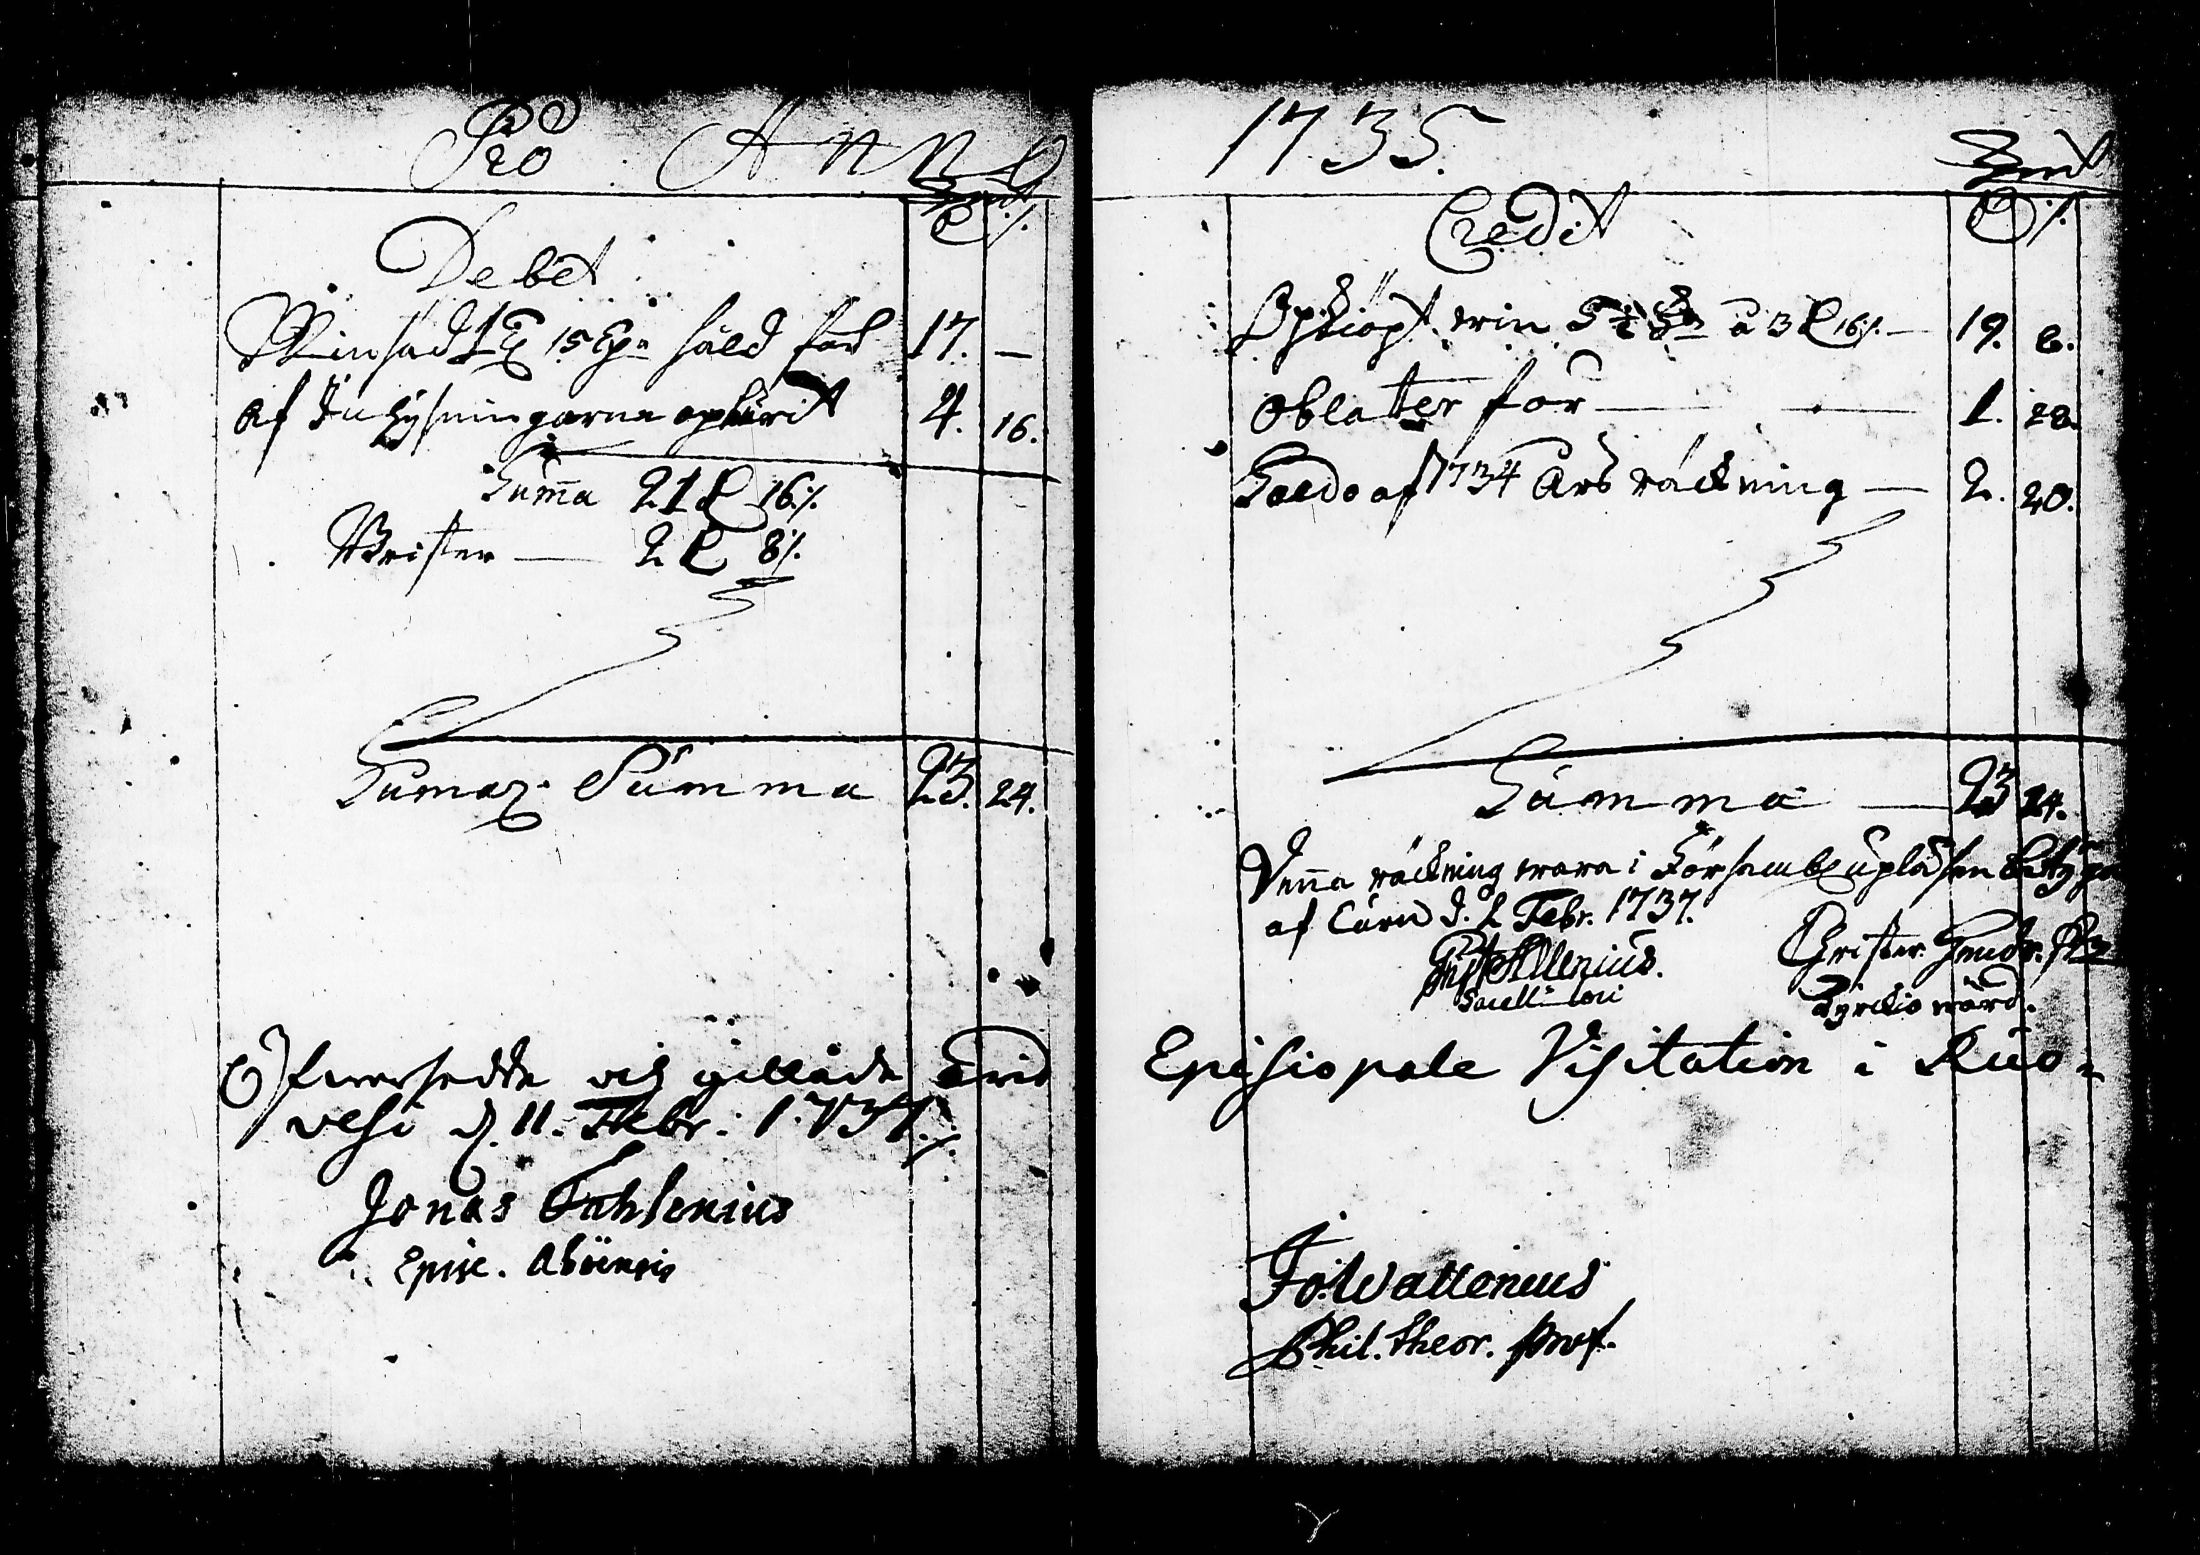 Pro Anno
Debet
Winsäd 1 15 såld för 17. —
af Inlysningarna upburit 4. 16.
Summa 21 16 ./.
Brister — 2 8 ./.
Sumar. Summa 23. 24.
Öfwersedde och gillade wid
vesi d. 11. Febr. 1737 ./.
Jonas Fahlenius
Episc. Aboënsis
1735.
Credit
Upkiöpt win 5 ½ a 3 16 ./. — 19. 8.
Oblater för — 1. 28.
Saldo af 1734 Års räckning — 2. 20.
Summa — 23 24.
Denna räckning wara i Försambl upläsen betyga
af Curu d. 2 Febr. 1737.
Allenius.
Sacell: loci
Christer
Kyrckio wärd.
Episcopale Visitation i Ruo-
Jo. Wallenius
Phil. theor. prof.